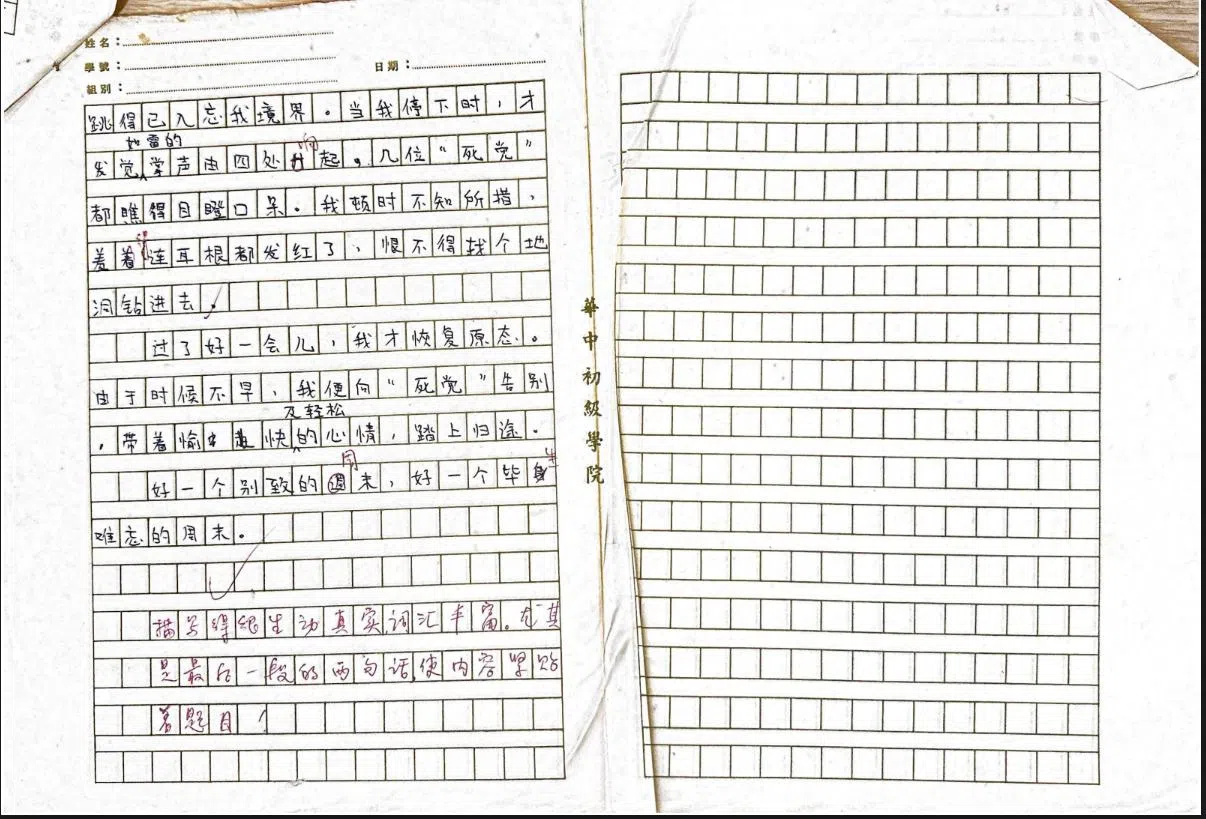 姓名：
學號：
日期：
組別：
跳得已入忘我境界。当我停下时，才
如雷的
响
发觉掌声由四处升起，几位“死党”
都瞧得目瞪口呆。我顿时不知所措，
得
羞着连耳根都发红了，恨不得找个地
洞钻进去。
过了好一会儿，我才恢复原态。
由于时候不早，我便向“死党”告别
及轻松
，带着愉快的心情，踏上归途。
周
生
好一个别致的週末，好一个毕身
难忘的周末。
描写得很生动真实，词汇丰富。尤其
是最后一段的两句话，使内容紧贴
着题目！
華中初級學院